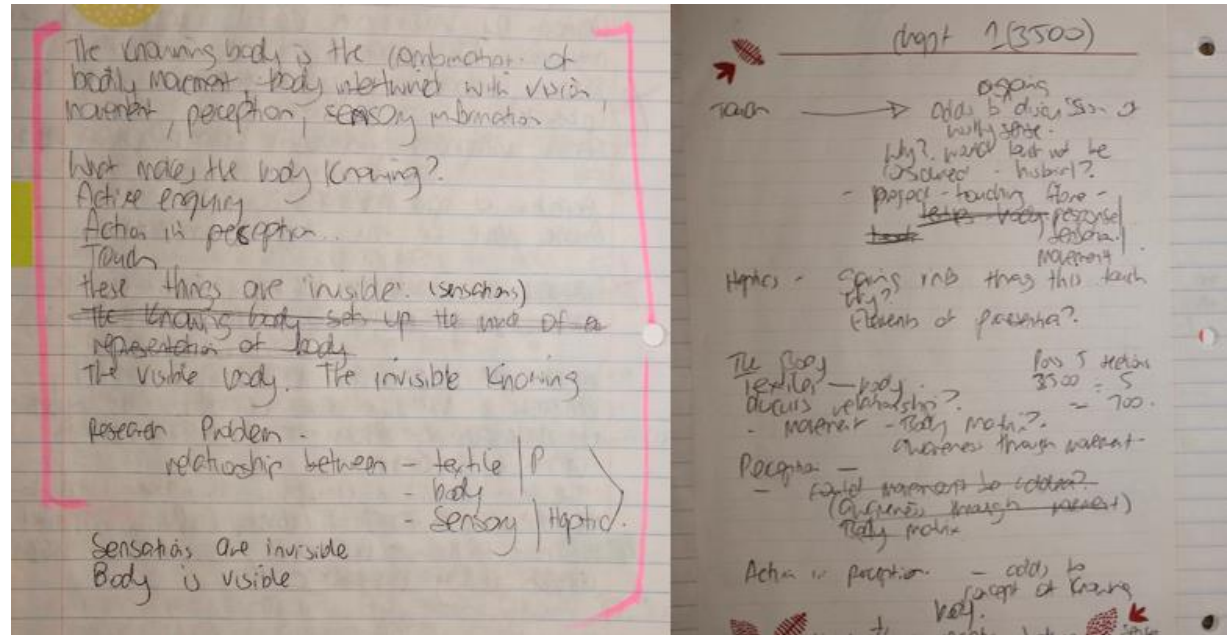 The Knowing body is the combination of
bodily movement, body intertwined with vision,
movement, perception, sensory information
What makes the body Knowing?.
Active enquiry
Action in perception..
Touch
these things are 'invisible'. (sensations)
The Knowing body sets up the  of a
representation of body
The visible body. The invisible Knowing
Research Problem -
relationship between - textile | P
- body
- Sensory | Haptic.
Sensations are invisible
Body is visible
Chapt 1 (3500)
ongoing
Touch → adds to discussion of
Why?. would touch not be
considered - 
- project - touching 
body response
movement
Haptics - things this touch
Why?.
Elements of 
The Body
Textiles — body
discuss relationship?.
5 sections
3500 ÷ 5
= 700.
- movement - Body matrix?.
awareness through movement -
Perception —
- could movement be 
(awareness through movement)
Body matrix
Action in perception - adds to
concept of Knowing
body.